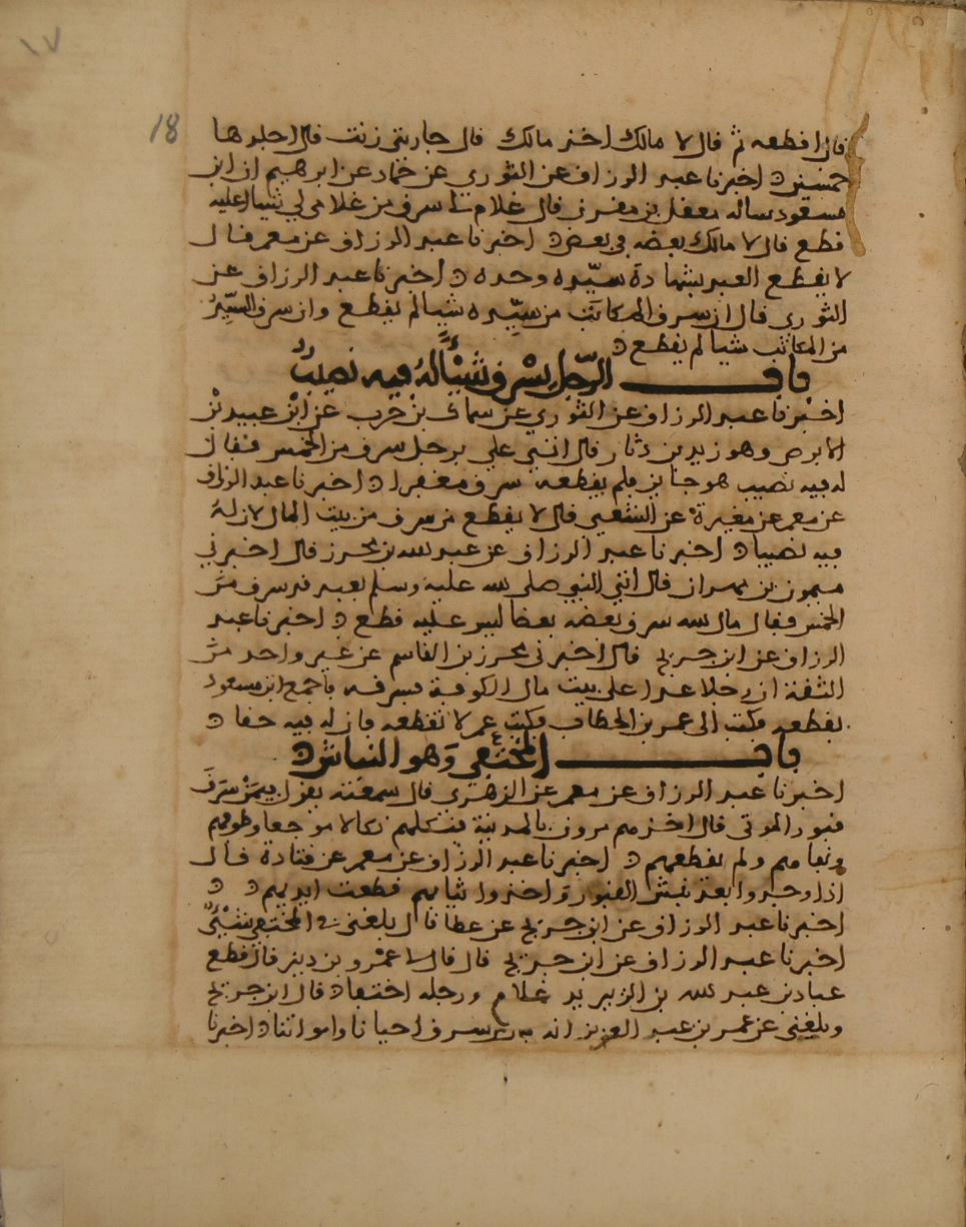 ١٧
18
قال اقطعه ثم قال لا مالك اخذ مالك قال جاريتي زنت قال اجلدوها
خمسين ه اخبرنا عبد الرزاق عن الثوري عن حماد عن ابرهيم ان ابن
مسعود ساله معقل بن مقرن قال غلام لنا سرق من غلام لي شيا اعليه
قطع قال لا مالك بعضه في بعض ه اخبرنا عبد الرزاق عن معمر قال
لا يقطع العبد بشهادة سيّده وحده ه اخبرنا عبد الرزاق عن
الثوري قال ان سرق المكاتب من سيّده شيا لم يقطع وان سرق السيّد
من المكاتب شيا لم يقطع ه
باب الرّجل يسْرق شيْاً لهُ فيه نصيبٌ
اخبرنا عبد الرزاق عن الثوري عن سماك بن حرب عن ابن عبيد بن
الابرص وهو زيد بن دثار قال اتي علي برجل سرق من الخمس فقال
له فيه نصيب هو جاين فلم يقطعه سرق مغفرا ه اخبرنا عبد الرزاق
عن معمر عن مغيرة عن الشعبي قال لا يقطع من سرق من بيت المال لان لهُ
فيه نصيبا ه اخبرنا عبد الرزاق عن عبد الله بن محرر قال اخبرني
ميمون بن مهران قال اتي النبي صلى الله عليه وسلم بعبد قد سرق من
الخمس فقال مال الله سرق بعضه بعضا ليس عليه قطع ه اخبرنا عبد
الرزاق عن ابن جريج قال اخبرني محرر بن القاسم عن غير واحد من
الثقة ان رجلا عدا على بيت مال الكوفة فسرقه فاجمع ابن مسعود
بقطعه فكتب الى عمر بن الخطاب فكتب عمر لا تقطعه فان له فيه حقا ه
باب المختفي وهو النباش ه
اخبرنا عبد الرزاق عن معمر عن الزهري قال سمعته يقول فيمن سرق
قبور الموتى قال اخذهم مروان بالمدينة فنكلهم نكالا موجعا وطوفهم
ونفاهم ولم يقطعهم ه اخبرنا عبد الرزاق عن معمر عن قتادة قال
اذا وجدوا بعد نبش القبور واخذوا ثيابهم قطعت ايديهم ه ه
اخبرنا عبد الرزاق عن ابن جريج عن عطا قال بلغني في المختفي شيْ
اخبرنا عبد الرزاق عن ابن جريج قال قال لنا عمرو بن دينر قال قطع
عباد بن عبد الله بن الزبير يد غلام ورجله اختفا ه قال ابن جريج
وبلغني عن عمر بن عبد العزيز انه سرق احيانا وامواتنا ه اخبرنا